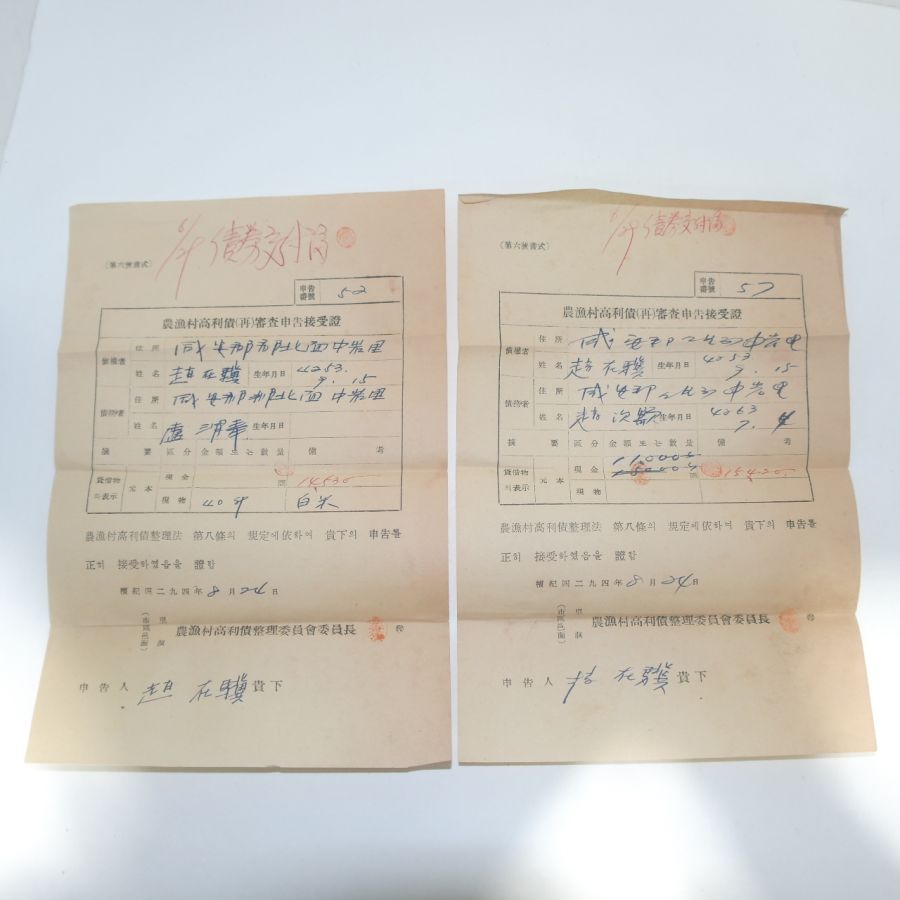 6/29 債券交付済
(第六號書式)
申告番號 52
農漁村高利債(再)審査申告接受證
債權者 住所 咸安郡 北面 中岩里
姓名 趙在驥 生年月日 4253. 9. 15
債務者 住所 咸安郡 北面 中岩里
姓名 盧 生年月日
摘要 區分 金額또는數量 備考
貸借物의表示 元本 現金 14530
現物 40斗 白米
農漁村高利債整理法 第八條의 規定에依하여 貴下의 申告를
正히 接受하였음을 證함
檀紀四二九四年 8月 24日
農漁村高利債整理委員會委員長 ㊞
申告人 趙在驥 貴下
6/29 債券交付済
(第六號書式)
申告番號 57
農漁村高利債(再)審査申告接受證
債權者 住所 咸安郡 中岩里
姓名 趙在驥 生年月日 4253 9. 15
債務者 住所 咸安郡 中岩里
姓名 趙 生年月日 4263 7. 4
摘要 區分 金額또는數量 備考
貸借物의表示 元本 現金 110000
現物
農漁村高利債整理法 第八條의 規定에依하여 貴下의 申告를
正히 接受하였음을 證함
檀紀四二九四年 8月 24日
農漁村高利債整理委員會委員長 ㊞
申告人 在驥 貴下